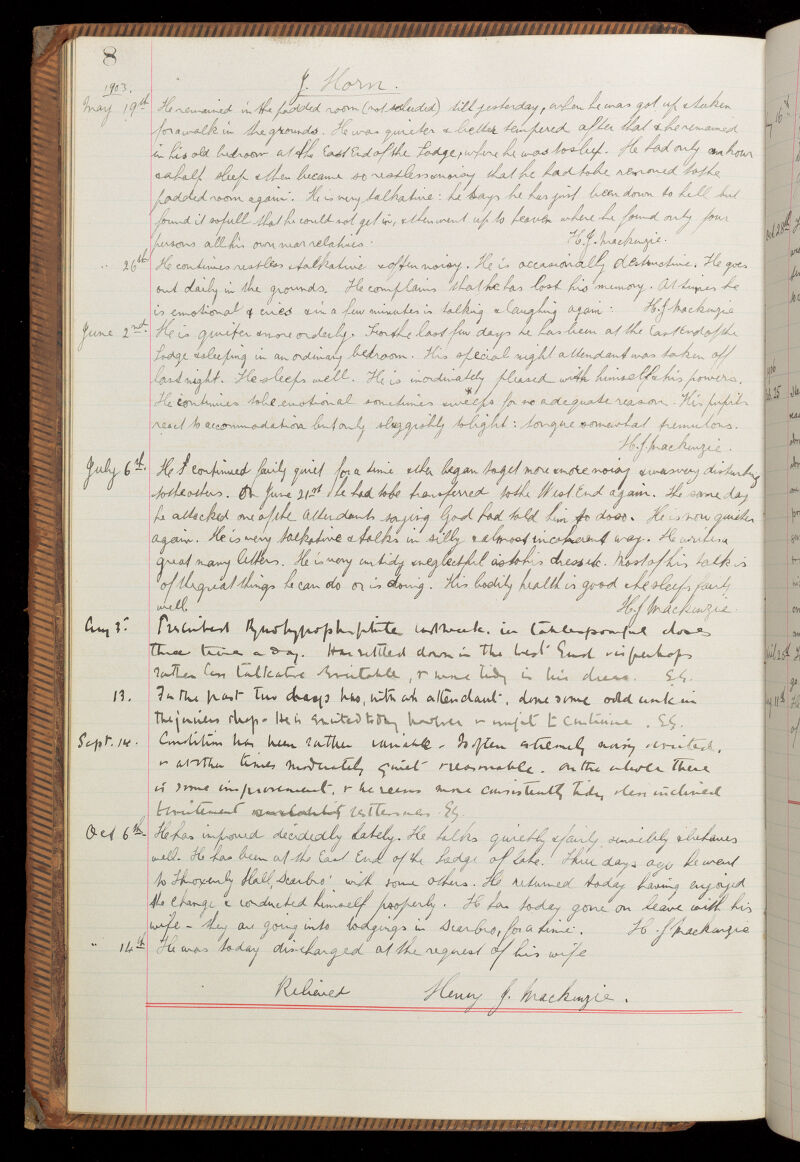 8
J. Horn.
1903.
May 19th He remained in the padded room (not secluded) till yesterday, when he was got up & taken
for a walk in the grounds. He was quieter & better tempered after that & he remained
in his old bedroom at the East End of the Lodge, where he was to sleep. He had only an hour
& a half sleep & then became so restless & noisy that he had to be removed to the
padded room again. He is very talkative: he says he has just been down to hell but
found it so full that he could not get in, & then went up to heaven where he found only four
persons all his own near relatives. H.J. Mackenzie.
" 26th He continues restless & talkative & often noisy. He is occasionally destructive. He goes
out daily in the grounds. He complains that he has lost his memory. At times he
is emotional & cries & in a few minutes is talking & laughing again: H.J. Mackenzie
June 2nd. He is quieter & more orderly. For the last few days he has been at the East End of the
Lodge & sleeping in an ordinary bedroom. His special night attendant was taken off
last night. He sleeps well. He is inordinately pleased with himself & his powers.
He continues to be emotional sometimes & weeps for no adequate reason. His pupils
react to accommodation but only sluggishly to light: tongue somewhat tremulous.
H.J. Mackenzie.
July 6th. He continued fairly quiet for a time & then began to get more & more noisy & was very disturbing
to the others. On June 21st he had to be transferred to the West End again. The same day
he attacked one of the attendants saying God had told him to do so. He is now quieter
again. He is very talkative & talks in silly & almost incoherent way. He writes a
great many letters. He is very untidy & neglectful as to his dress etc. Most of his talk is
of the great things he can do or is doing. His bodily health is good & he sleeps fairly
well. H.J. Mackenzie.
Aug 3. Prescribed in tablespoonful doses
three times a day. Has settled down in the West End & is perhaps
rather less talkative & excitable, & more tidy in his dress. EG.
13. In the past two days has, with an attendant, done some odd work in
the joiners shop. He is excited today however & unfit to continue. EG.
Sept. 14. Condition has been rather variable. Is often extremely noisy & excited,
& at other times moderately quiet & reasonable. On the whole there
is some improvement, & he seems more consistently tidy & less inclined
to excitement restlessness. EG.
Oct 6th He has improved decidedly lately. He talks quietly & fairly sensibly & behaves
well. He has been at the East End of the Lodge of late. Three days ago he went
to Throxenby Hall, Scarbro' with some others. He returned today having enjoyed
the change & conducted himself properly. He has today gone on leave with his
wife – they are going into lodgings in Scarbro, for a time. H.J. Mackenzie
" 14th He was today discharged at the request of his wife
Relieved Henry J. Mackenzie.